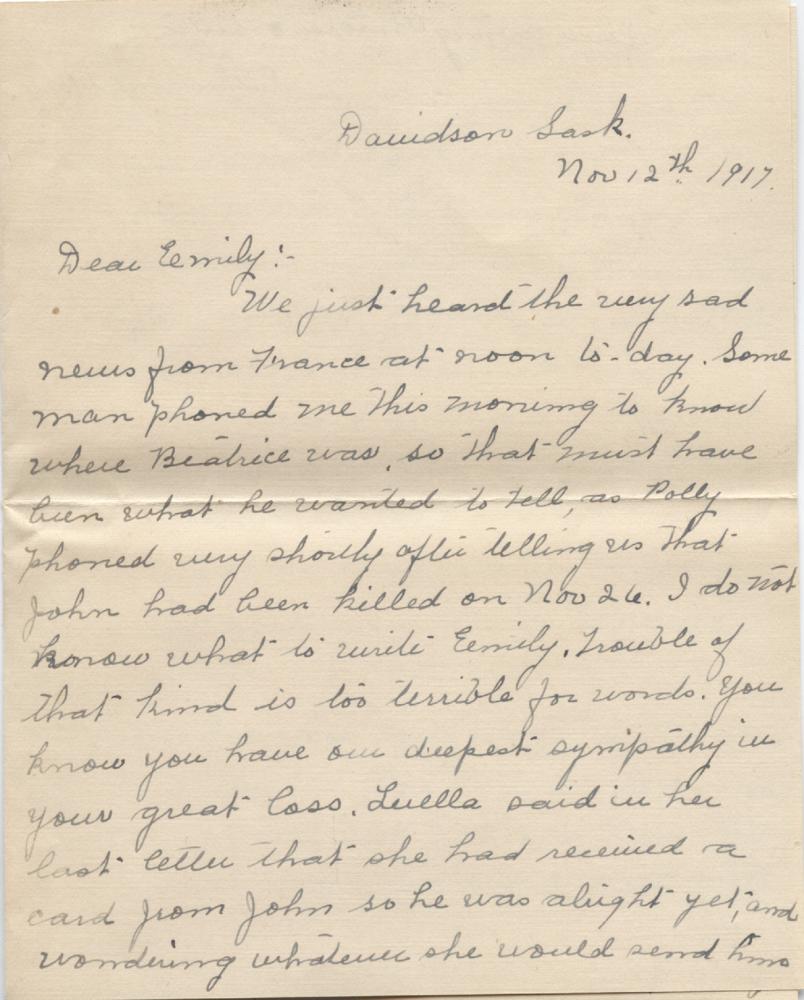 Davidson Sask.
Nov 12th 1917.
Dear Eemily:-
We just heard the very sad
news from France at noon to-day. Some
man phoned me this morning to know
where Beatrice was, so that must have
been what he wanted to tell, as Polly
phoned very shortly after telling us that
John had been killed on Nov 26. I do not
know what to write Eemily. Trouble of
that kind is too terrible for words. You
know you have our deepest sympathy in
your great loss. Luella said in her
last letter that she had received a
card from John so he was alright yet, and
wondering whatever she would send him